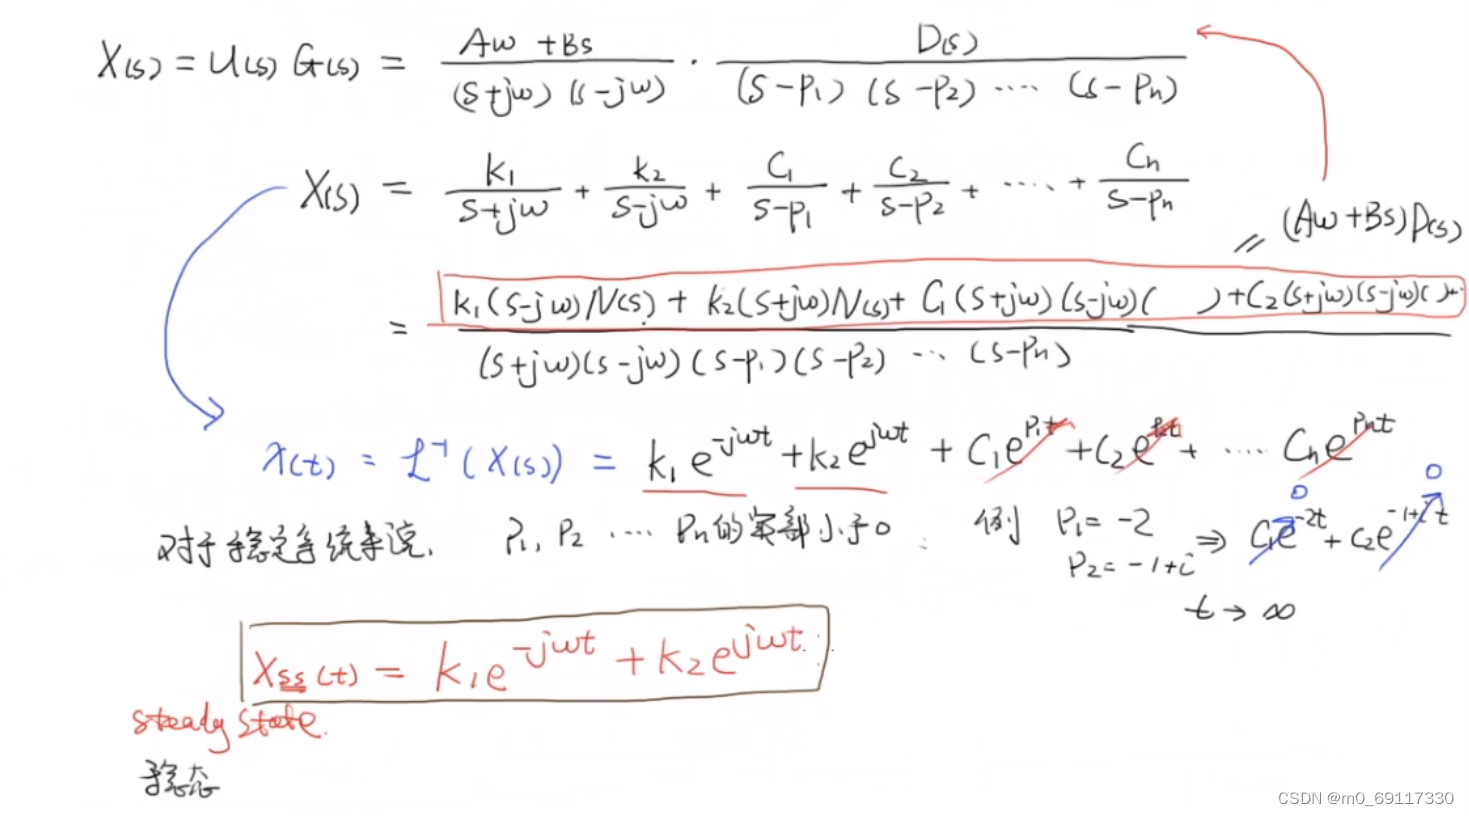 X(s) = U(s) G(s) = \frac{Aω + Bs}{(s+jω)(s-jω)} · \frac{D(s)}{(s-p₁)(s-p₂) ···· (s-pₙ)}
X(s) = \frac{k₁}{s+jω} + \frac{k₂}{s-jω} + \frac{C₁}{s-p₁} + \frac{C₂}{s-p₂} + ···· + \frac{Cₙ}{s-pₙ}
// (Aω+Bs)D(s)
= \frac{k₁(s-jω)N(s) + k₂(s+jω)N(s) + C₁(s+jω)(s-jω)( ) + C₂(s+jω)(s-jω)( )+··}{(s+jω)(s-jω)(s-p₁)(s-p₂) ··· (s-pₙ)}
x(t) = ℒ⁻¹(X(s)) = k₁e^{-jωt} + k₂e^{jωt} + C₁e^{p₁t} + C₂e^{p₂t} + ···· Cₙe^{pₙt}
对于稳定系统来说, P₁, P₂ ···· Pₙ的实部小于0 : 例 P₁ = -2 ⇒ C₁e^{-2t} + C₂e^{-1+i t}
0 0
P₂ = -1+i
t → ∞
Xss(t) = k₁e^{-jωt} + k₂e^{jωt}
steady state.
稳态
CSDN @m0_69117330